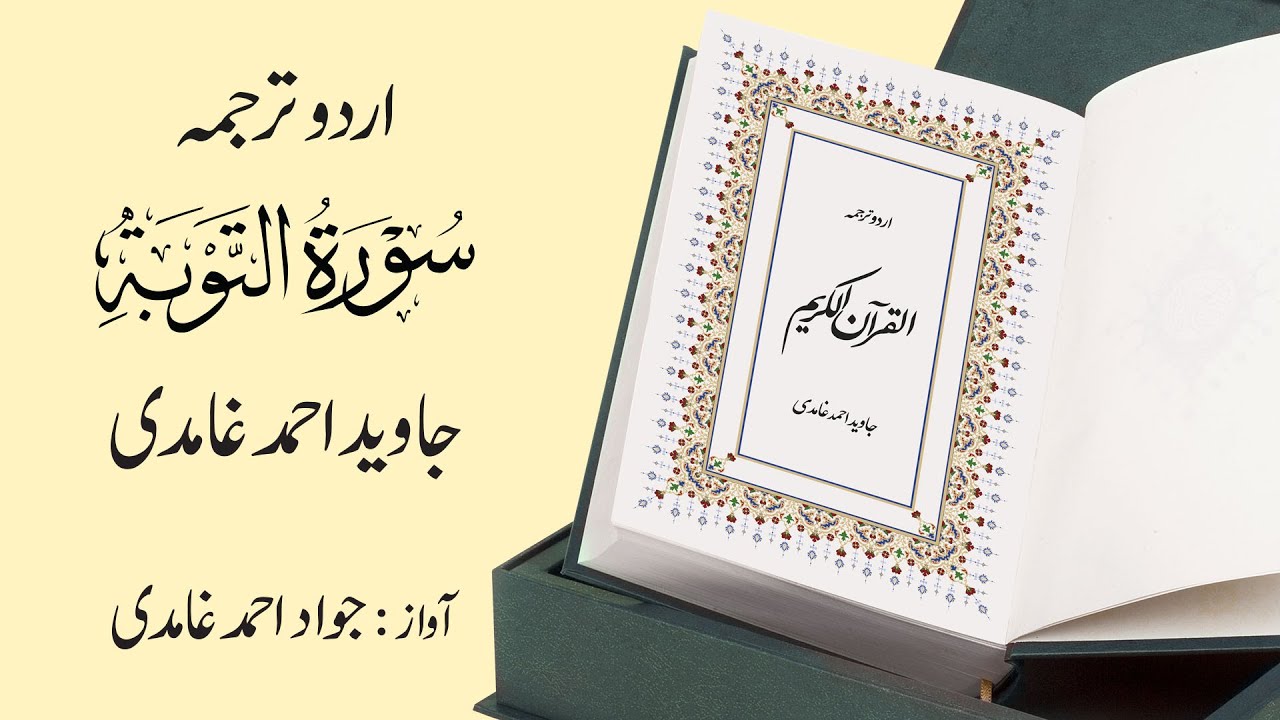 اردو ترجمہ
سُوْرَةُ التَّوْبَةِ
جاوید احمد غامدی
آواز : جواد احمد غامدی
اردو ترجمہ
القرآن الکریم
جاوید احمد غامدی